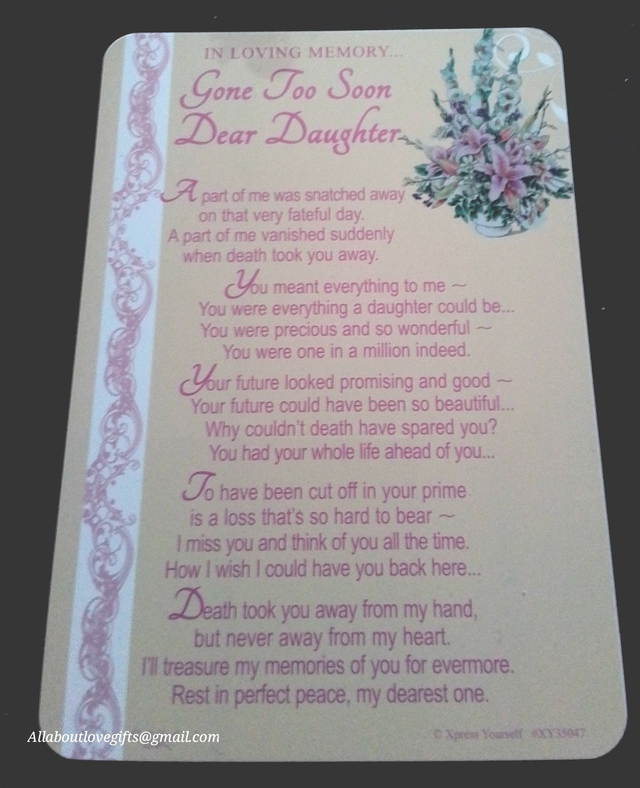 IN LOVING MEMORY...
Gone Too Soon
Dear Daughter
A part of me was snatched away
on that very fateful day.
A part of me vanished suddenly
when death took you away.
You meant everything to me ~
You were everything a daughter could be...
You were precious and so wonderful ~
You were one in a million indeed.
Your future looked promising and good ~
Your future could have been so beautiful...
Why couldn't death have spared you?
You had your whole life ahead of you...
To have been cut off in your prime
is a loss that's so hard to bear ~
I miss you and think of you all the time.
How I wish I could have you back here...
Death took you away from my hand,
but never away from my heart.
I'll treasure my memories of you for evermore.
Rest in perfect peace, my dearest one.
© Xpress Yourself #XY35047
Allaboutlovegifts@gmail.com